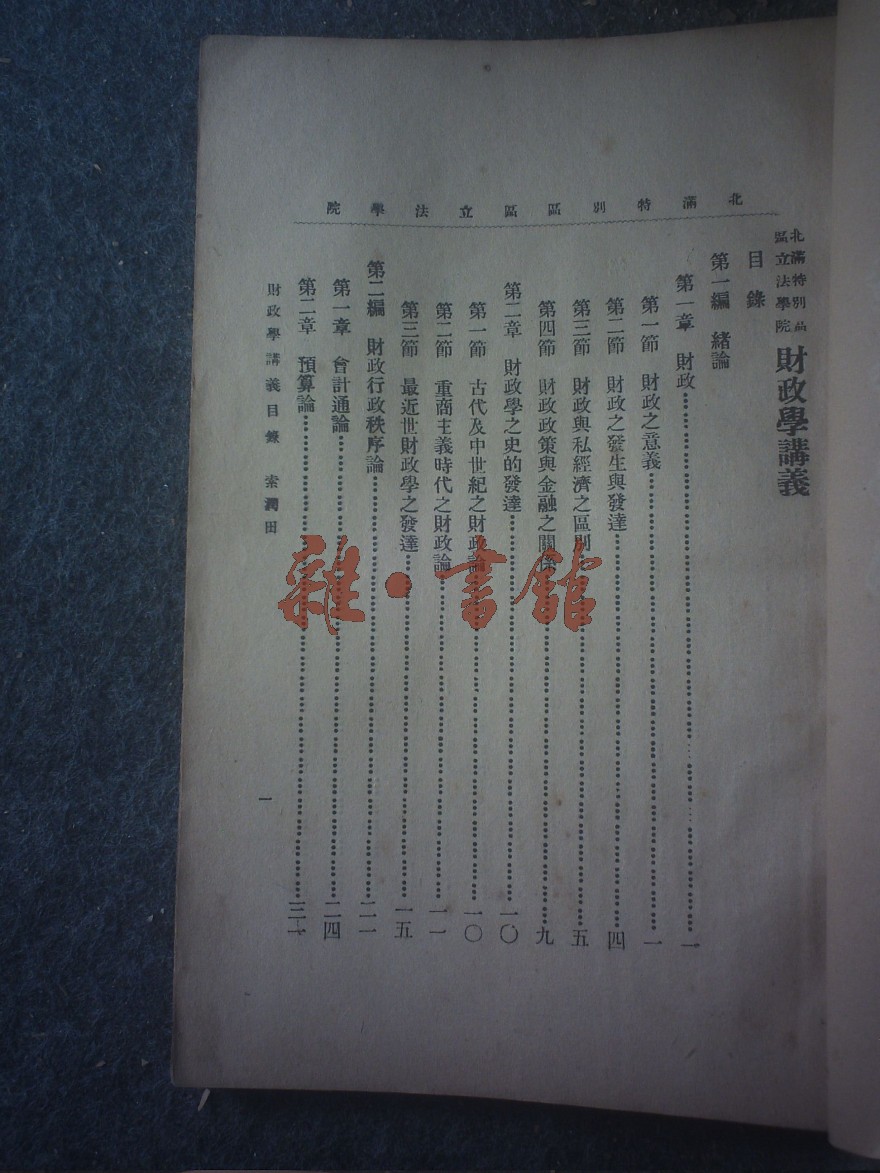 北滿特別區區立法學院
北滿特別區
區立法學院 財政學講義
目錄
第一編 緒論
第一章 財政……一
第一節 財政之意義……一
第二節 財政之發生與發達……四
第三節 財政與私經濟之區別……五
第四節 財政政策與金融之關係……九
第二章 財政學之史的發達……一〇
第一節 古代及中世紀之財政論……一〇
第二節 重商主義時代之財政論……一一
第三節 最近世財政學之發達……一五
第二編 財政行政秩序論……二一
第一章 會計通論……二四
第二章 預算論……
財政學講義目錄 索潤田
一
雜·書館